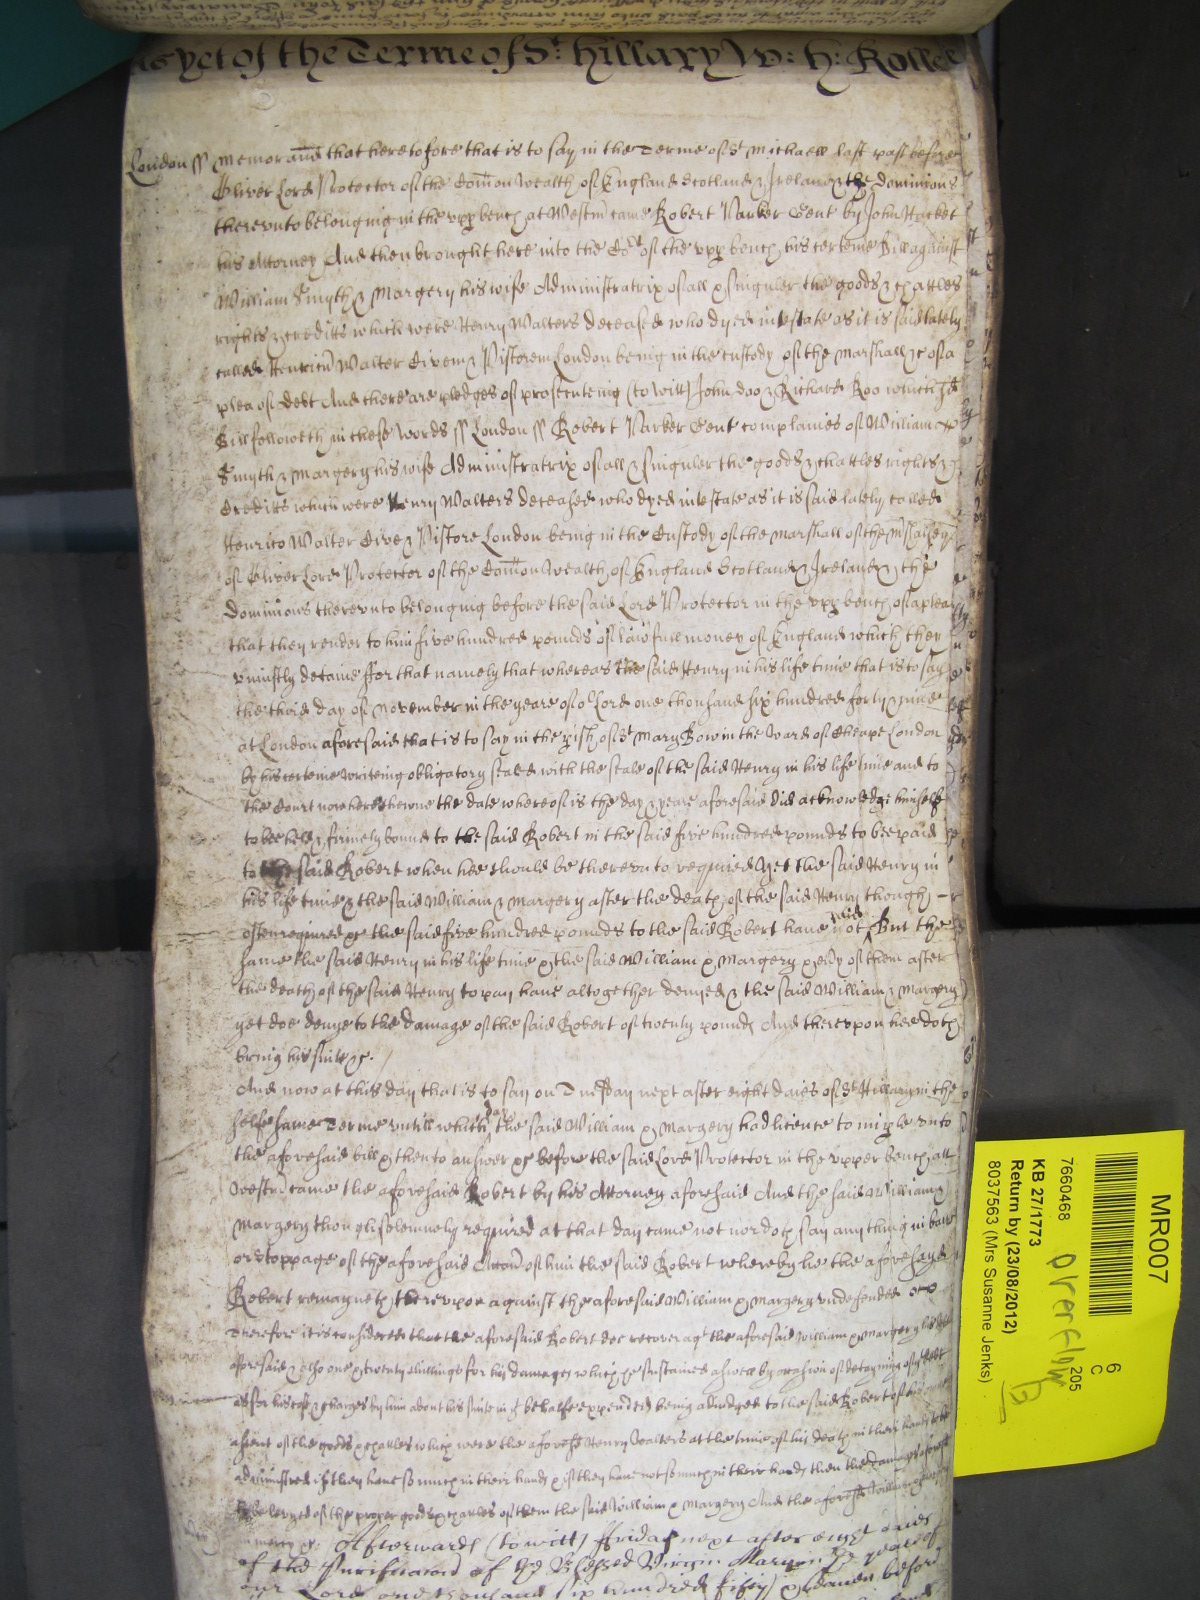 As yet of the Terme of St. Hillary W: H: Rolle
London ss Memorand that heretofore that is to say in the Terme of St Michaell last past before
Oliver Lord Protector of the Com̄on Wealth of England Scotland & Ireland & the dominions
therevnto belonging in the vpp bench at Westm̄ came Robert Parker Gent by John Hacket
his Attorney And then brought here into the Cort of the vpp bench his certeine Bill against
William Smyth & Margery his wife Administratrix of all & singuler the goods & chattles
rights & creditts which were Henry Walters deceased who dyed intestate as it is said lately
called Henricū Walter Civem & Pistorem London being in the custody of the Marshall &c of a
plea of debt And there are pledges of prosecuteing (to witt) John doo & Richard Roo which sd
Bill followeth in these words ss London ss Robert Parker Gent complaines of William
Smyth & Margery his wife Administratrix of all & singuler the goods & chattles rights &
Creditts which were Henry Walters deceased who dyed intestate as it is said lately called
Henrico Walter Cive & Pistore London being in the Custody of the Marshall of the
of Oliver Lord Protector of the Com̄on Wealth of England Scotland & Ireland & the
Dominions therevnto belonging before the said Lord Protector in the vpp bench of a plea
that they render to him five hundred pounds of lawfull money of England which they
vniustly detaine ffor that namely that whereas the said Henry in his life time that is to say
the third day of November in the yeare of or Lord one thousand six hundred forty & nine
at London aforesaid that is to say in the pish of St Mary Bow in the Ward of Cheape London
by his certeine writeing obligatory sealed with the seale of the said Henry in his life time and to
the Court now here shewne the date whereof is the day & yeare aforesaid did acknowledge himself
to bee held & firmely bound to the said Robert in the said five hundred pounds to bee paid
to the said Robert when hee should be therevnto required Yet the said Henry in
his life time & the said William & Margery after the death of the said Henry though
often required &c the said five hundred pounds to the said Robert have not paid But the
same the said Henry in his life time & the said William & Margery & eīy of them after
the death of the said Henry to pay have altogether denyed & the said William & Margery
yet doe denye to the damage of the said Robert of twenty pounds And therevpon hee doth
bring his suite &c.
And now at this day that is to say on Tuesday next after eight daies of St Hillary in the
selfe same Terme vntill which day the said William & Margery had licence to imparle vnto
the aforesaid bill & then to answer &c before the said Lord Protector in the vpper bench att
Westm̄ came the aforesaid Robert by his Attorney aforesaid And the said William &
Margery though solemnely required at that day came not nor doth say any thing in barr
or stoppage of the aforesaid Accōn of him the said Robert whereby he the aforesayd
Robert remayneth therevpon against the aforesaid William & Margery vndefended
Therefore it is considered that the aforesaid Robert doe recover agt the aforesaid William & Margery his debt
aforesaid & also one & twenty shillings for his damages which he sustained aswell by occasion of detayning of yt debt
as for his costs & charges by him about his suite in yt behalfe expended being adiudged to the said Robert of his
assent of the goods & chattles which were the aforesd Henry Walters at the time of his death in their hands to be
administred if they have so much in their hands & if they have not so much in their hands then the damages aforesd
to be levyed of the proper goods & chattles of them the said William & Margery And the aforesd William &
in mercy &c. Afterwards (to witt) ffriday next after eight daies
of the Purificacon of the Blessed Virgin Mary in ye yeare of
our Lord one thousand six hundred fifty & seaven before
MR007
6
C
205
7660468
overflow
KB 27/1773
Return by (23/08/2012)
8037563 (Mrs Susanne Jenks)